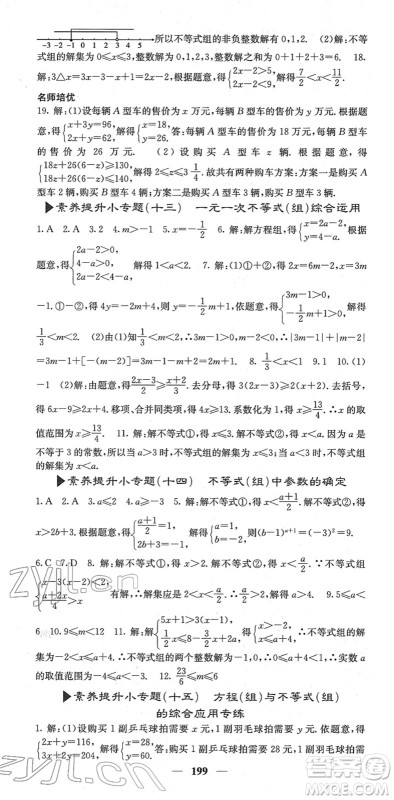 -3 -2 -1 0 1 2 3 4 5 所以不等式组的非负整数解有 0,1,2. (2)解:不等
式组的解集为 0≤x≤3,整数解为 0,1,2,3,整数解之和为 0+1+2+3=6. 18.
解:3△x=3x-3-x+1=2x-2.根据题意,得{2x-2>5, 2x-2<9,解得 7/2<x<11/2.
名师培优
19.解:(1)设每辆 A 型车的售价为 x 万元,每辆 B 型车的售价为 y 万元.根据题
意,得{x+3y=96, 2x+y=62,解得{x=18, y=26.答:每辆 A 型车的售价为 18 万元,每辆 B 型车
的售价为 26 万元. (2)设购买 A 型车 z 辆,根据题意,得
{18z+26(6-z)≥130, 18z+26(6-z)≤140,解得 2≤z≤3 1/4.故共有两种购车方案:方案一是购买 A
型车 2 辆,购买 B 型车 4 辆;方案二是购买 A 型车 3 辆,购买 B 型车 3 辆.
▶素养提升小专题(十三) 一元一次不等式(组)综合运用
1.A 2.A 3.2 4.m>-1 5.x=-1/2 6.解:解方程组,得{x=2a-2, y=4-a.根据
题意,得{2a-2>0, 4-a>0, 2a-2<4-a,解得 1<a<2. 7.解:①+②,得 2x=6m-2,x=3m
-1.①-②,得 4y=-2m+4,则 y=-1/2m+1,依题意,得{3m-1>0, -1/2m+1>0,解得
1/3<m<2. (2)由(1)知1/3<m<2,∴3m-1>0,m-2<0,∴|3m-1|+|m-2|
=3m-1+[-(m-2)]=3m-1-m+2=2m+1. 8. 1/3<x<1 9.1 10.(1)
-1 (2)解:由题意,得2x-3/2≥x+2/3.去分母,得 3(2x-3)≥2(x+2).去括号,
得 6x-9≥2x+4.移项、合并同类项,得 4x≥13.系数化为 1,得 x≥13/4.∴x 的取
值范围为 x≥13/4. 11.解:解不等式①,得 x≤3.解不等式②,得 x<a.因为 a 是
不等于 3 的常数,所以当 a>3 时,不等式组的解集为 x≤3;当 a<3 时,不等式组
的解集为 x<a.
▶素养提升小专题(十四) 不等式(组)中参数的确定
1.A 2.A 3.a≤2 4.a≥-3 5.解:解不等式①,得 x<a+1/2.解不等式②,得
x>2b+3.根据题意,得{a+1/2=1, 2b+3=-1,解得{a=1, b=-2,则(b-1)^{a+1}=(-3)^2=9.
6.C 7.D 8.解:解不等式①,得 x>2.解不等式②,得 x<a/2.∵不等式组
{x-3(x-2)<2, a+2x/4>x 有解,∴解集应是 2<x<a/2,则 a/2>2,即 a>4. 9.5≤a<
6 10.9≤m<12 11.解:解不等式组{5x+1>3(x-1), 1/2x≤8-3/2x+2a,得{x>-2, x≤4+a,∴不等式组的解
集为-2<x≤a+4.∵不等式组的两个整数解为-1,0,∴0≤a+4<1,∴实数 a
的取值范围为-4≤a<-3. 12. 23/6≤m≤6
▶素养提升小专题(十五) 方程(组)与不等式(组)
的综合应用专练
1.解:(1)设购买 1 副乒乓球拍需要 x 元,1 副羽毛球拍需要 y 元.依题意,得
{2x+y=116, 3x+2y=204,解得{x=28, y=60.答:购买 1 副乒乓球拍需要 28 元,1 副羽毛球拍需
199